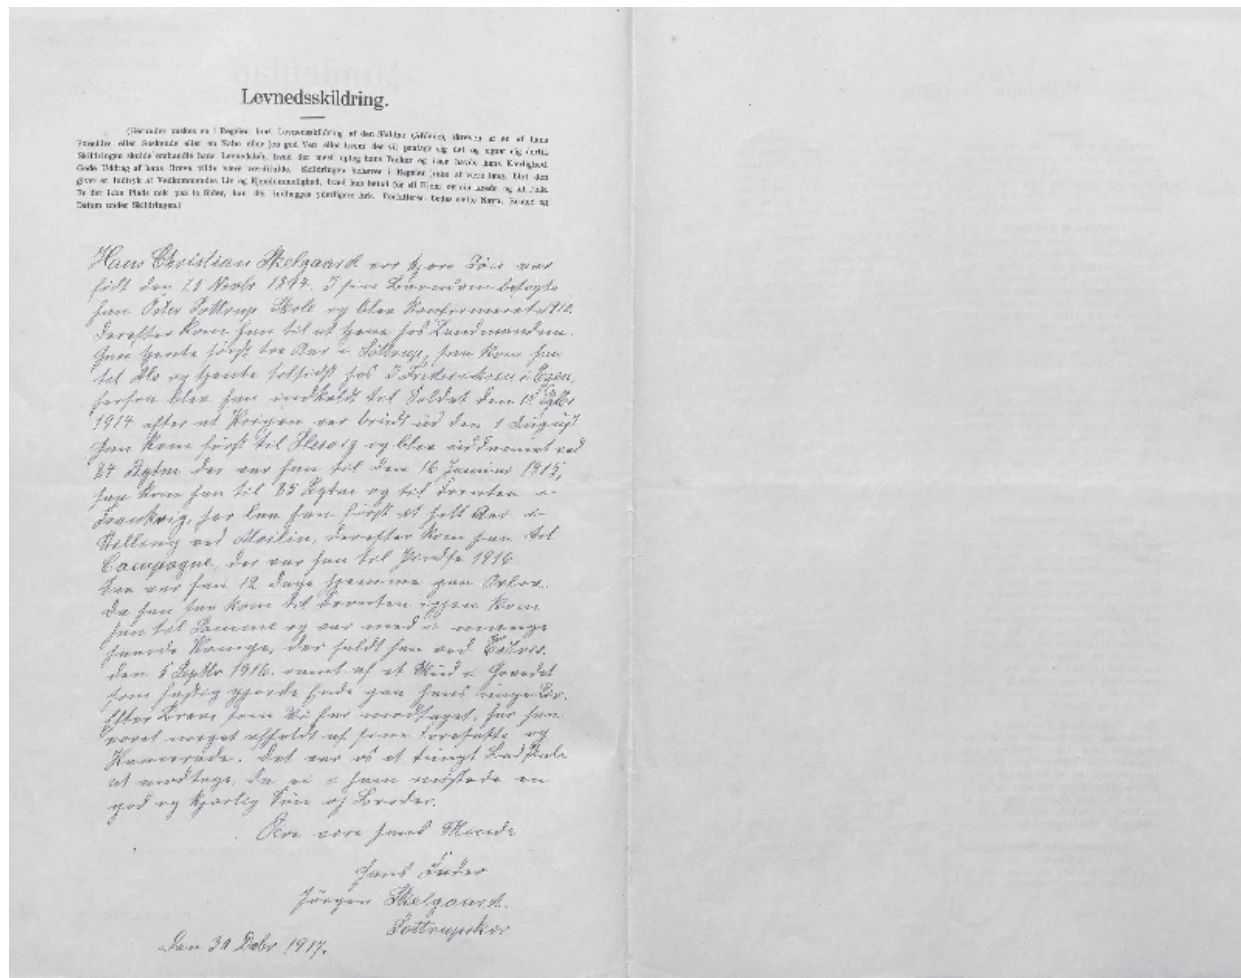 Levnedsskildring.
(Herunder ønskes en i Regelen kort Levnedsskildring af den Faldne (Afdøde), skreven af en af hans
Forældre eller Søskende eller en Nabo eller en god Ven eller hvem der vil paatage sig det og egner sig dertil.
Skildringen skulde omhandle hans Levnedsløb, hvad der mest optog hans Tanker og især havde hans Kærlighed.
Gode Uddrag af hans Breve vilde være værdifulde. Skildringen behøver i Regelen ikke at være lang, blot den
giver et Indtryk af Vedkommendes Liv og Ejendommelighed, hvad han betød for sit Hjem og sin Kreds og sit Folk.
Er der ikke Plads nok paa to Sider, kan der indlægges yderligere Ark. Forfatteren bedes sætte Navn, Bopæl og
Datum under Skildringen.)
Hans Christian Skelgaard vor kjære Søn var
født den Novbr 1894. I sin Barndom besøgte
han Øster Sottrup Skole og blev konfirmeret 1910.
derefter kom han til at tjene hos Landmændene.
Han tjente først tre Aar i Sottrup, saa kom han
til Als og tjente tilsidst hos J Frederiksen i
herfra blev han indkaldt til Soldat den
1914 efter at Krigen var brudt ud den 1 August
han kom først til Slesvig og blev uddannet ved
84 Rgtm der var han til den 16 Januar 1915,
saa kom han til 85 Rgtm og til Fronten i
Frankrig, her laa han først et halt Aar i
Stilling ved Moilin, derefter kom han til
Campagne, der var han til 1916.
Saa var han 12 Dage hjemme paa Orlov.
Da han saa kom til Fronten igjen kom
han til Somme og var med i mange
haarde Kampe, der faldt han ved
den 5 Septbr 1916. ramt af et Skud i Hovedet
som hastig gjorde Ende paa hans unge Liv.
Efter Breve som Vi har modtaget, har han
været meget afholdt af sine Foresatte og
Kamerade. Det var os et tungt Budskab
at modtage, da vi i ham mistede en
god og kjærlig Søn og Broder.
Ære være hans Minde
hans Fader
Jörgen Skelgaard.
Sottrupskov
Den 30 Decbr 1917.